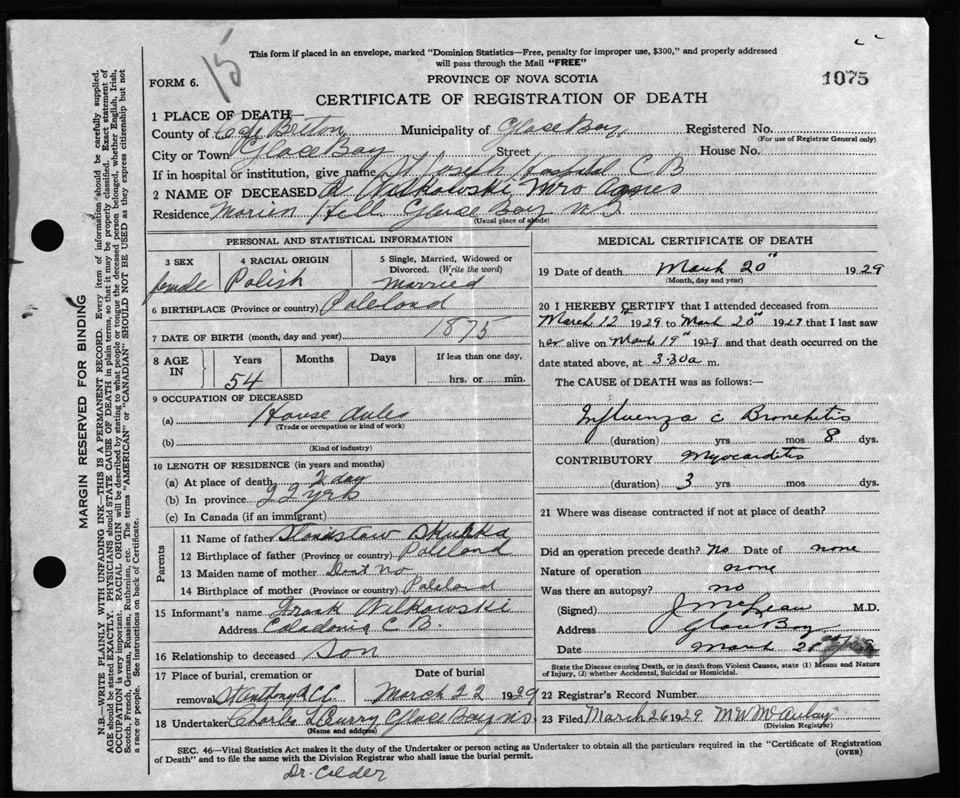 15
This form if placed in an envelope, marked "Dominion Statistics—Free, penalty for improper use, $300," and properly addressed
will pass through the Mail "FREE"
FORM 6.
PROVINCE OF NOVA SCOTIA
1075
CERTIFICATE OF REGISTRATION OF DEATH
1 PLACE OF DEATH—
County of Cape Breton Municipality of Glace Bay Registered No.
(For use of Registrar General only)
City or Town Glace Bay Street House No.
If in hospital or institution, give name St Joseph Hospital C B
2 NAME OF DECEASED Wilkowski Mrs Agnes
Residence Morien Hill Glace Bay N S
(Usual place of abode)
PERSONAL AND STATISTICAL INFORMATION
3 SEX
female
4 RACIAL ORIGIN
Polish
5 Single, Married, Widowed or
Divorced. (Write the word)
Married
6 BIRTHPLACE (Province or country) Poleland
7 DATE OF BIRTH (month, day and year) 1875
8 AGE IN
Years Months Days If less than one day,
54
hrs. or min.
9 OCCUPATION OF DECEASED
(a) House duties
(Trade or occupation or kind of work)
(b)
(Kind of industry)
10 LENGTH OF RESIDENCE (in years and months)
(a) At place of death 2 day
(b) In province 22 yrs
(c) In Canada (if an immigrant)
Parents
11 Name of father Stanistaw
12 Birthplace of father (Province or country) Poleland
13 Maiden name of mother Dont No
14 Birthplace of mother (Province or country) Poleland
15 Informant's name Frank Wilkowski
Address Caladonia C B.
16 Relationship to deceased son
17 Place of burial, cremation or Date of burial
removal St Anthony March 22 1929
18 Undertaker Charles Curry Glace Bay NS
(Name and address)
MEDICAL CERTIFICATE OF DEATH
19 Date of death March 20th 1929
(Month, day and year)
20 I HEREBY CERTIFY that I attended deceased from
March 12th 1929 to March 20th 1929 that I last saw
her alive on March 19th 1929 and that death occurred on the
date stated above, at 3.30a m.
The CAUSE of DEATH was as follows:—
Influenza c Bronchitis
(duration) yrs mos 8 dys.
CONTRIBUTORY Myocarditis
(duration) 3 yrs mos dys.
21 Where was disease contracted if not at place of death?
Did an operation precede death? No Date of none
Nature of operation none
Was there an autopsy? no
(Signed) J McLean M.D.
Address Glace Bay
Date March
State the Disease causing Death, or in death from Violent Causes, state (1) Means and Nature
of Injury, (2) whether Accidental, Suicidal or Homicidal.
22 Registrar's Record Number
23 Filed March 26 1929 M W McAulay
(Division Registrar)
SEC. 46—Vital Statistics Act makes it the duty of the Undertaker or person acting as Undertaker to obtain all the particulars required in the "Certificate of Registration
of Death" and to file the same with the Division Registrar who shall issue the burial permit.
(OVER)
Dr. Calder
MARGIN RESERVED FOR BINDING
N.B.—WRITE PLAINLY WITH UNFADING INK—THIS IS A PERMANENT RECORD. Every item of information should be carefully supplied.
AGE should be stated EXACTLY. PHYSICIANS should STATE CAUSE OF DEATH in plain terms, so that it may be properly classified. Exact statement of
OCCUPATION is very important. RACIAL ORIGIN will be described by stating to what people or tongue the deceased person belonged, whether English, Irish,
Scotch, French, German, Russian, Ruthenian, etc. The terms "AMERICAN" or "CANADIAN" SHOULD NOT BE USED as they express citizenship but not
a race or people. See instructions on back of Certificate.